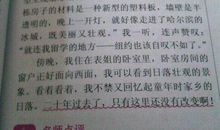 栋房子的材料是一种新型的塑料板，墙壁是半
透明的，晚上一开灯，就好像走进了哈尔滨的
冰城，既美丽又壮观。"我一听，连声赞叹：
"就连我留学的地方——纽约也该自叹不如了。"
傍晚，我住在表姐的卧室里，卧室房间的
窗户正好面向西面，我可以看到日落壮观的景
象。看着看着，我不禁又回忆起童年时家乡的
日落。二十年过去了，只有这里还没有改变啊！
名师点评